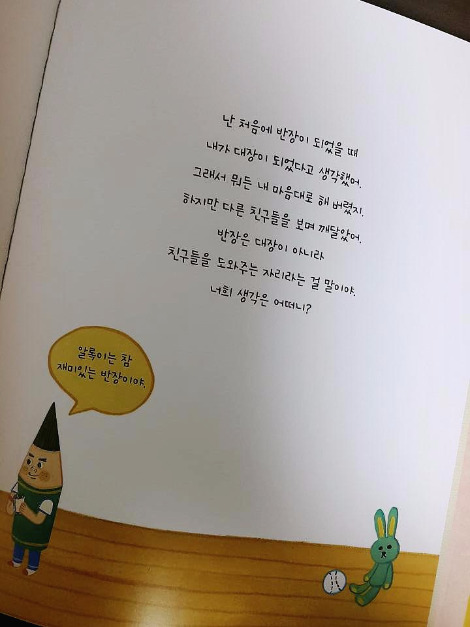 난 처음에 반장이 되었을 때
내가 대장이 되었다고 생각했어.
그래서 뭐든 내 마음대로 해 버렸지.
하지만 다른 친구들을 보며 깨달았어.
반장은 대장이 아니라
친구들을 도와주는 자리라는 걸 말이야.
너희 생각은 어떠니?
알록이는 참
재미있는 반장이야.